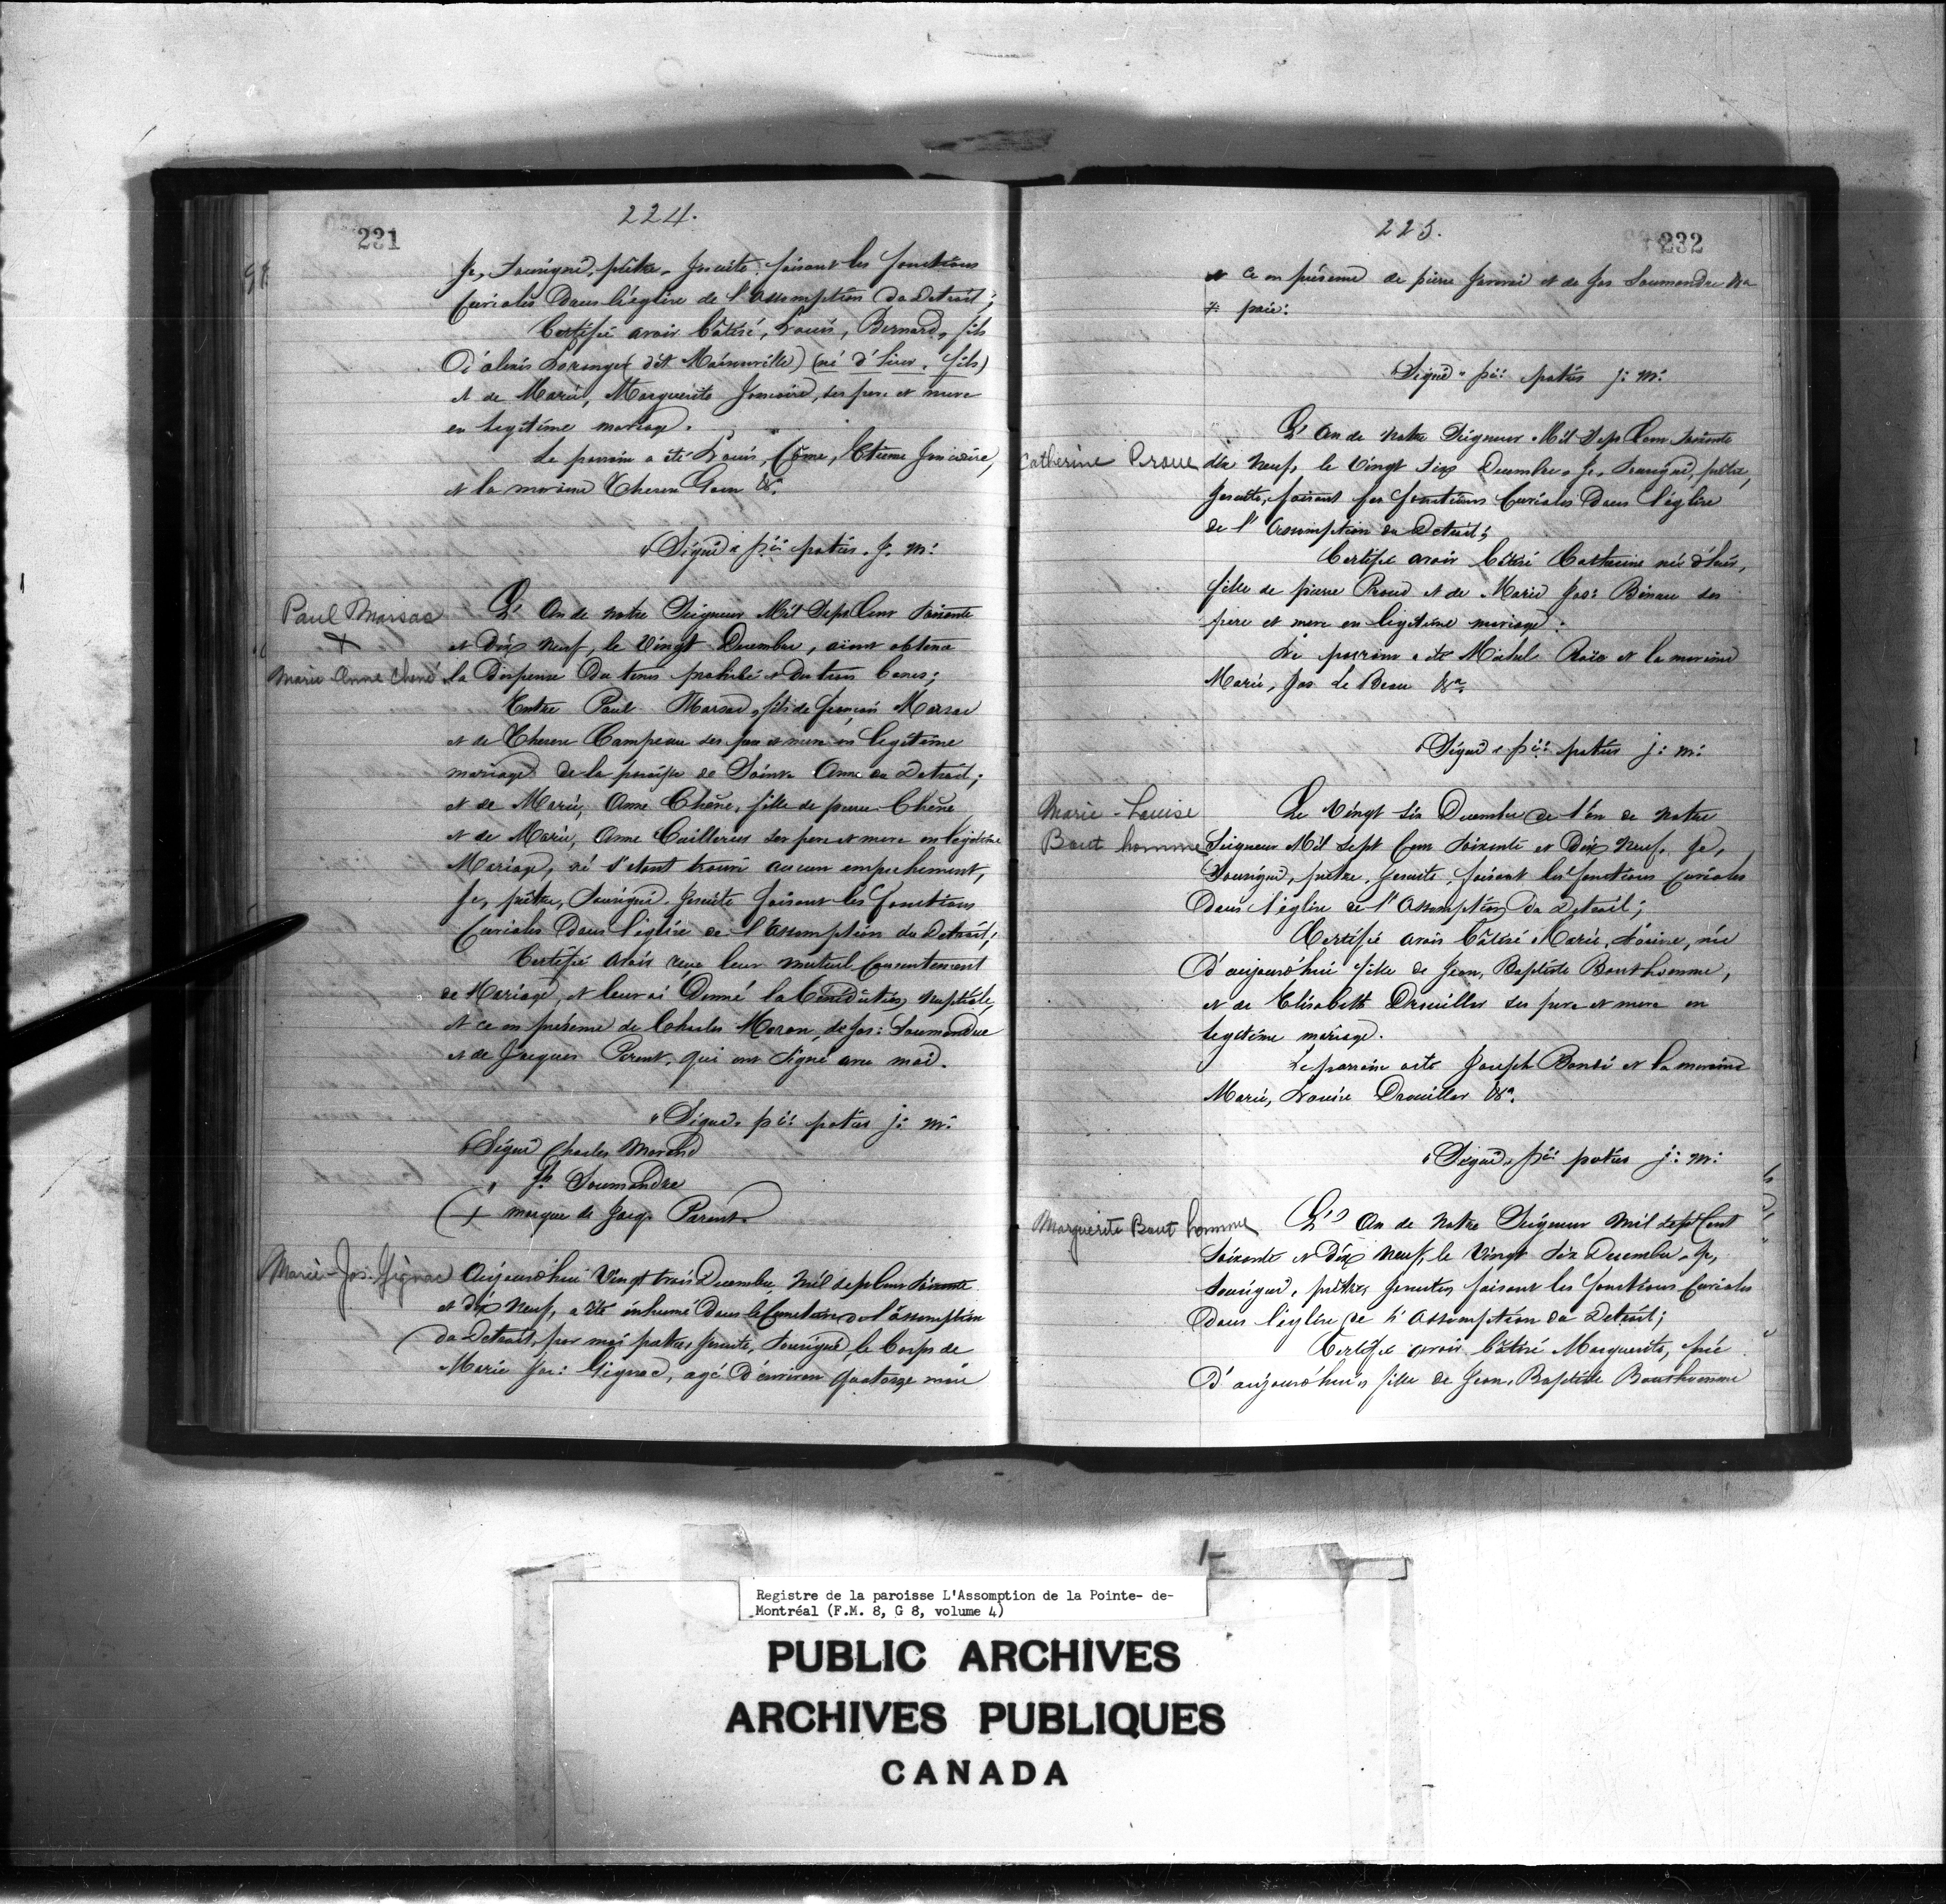 224.
231
Je, Sousigné, prêtre, Jesuite, faisant les fonctions
Curiales Dans l'église de l'assomption du Detroit;
Certifie avoir bâtisé, Louis, Bernard, fils
D'alexis Loranger (dit Maisonville) (né d'hier, fils)
et de Marie, Marguerite Joncaire, ses pere et mere
en legitime mariage.
Le parrain a été Louis, Côme, Etienne Joncaire,
et la moraine Therese Gouin &a.
"Signé" p:i: potier. J. m:
Paul Marsac
X
Marie Anne Chené
L' An de notre Seigneur Mil Sept Cent soixante
et Dix Neuf, le Vingt Decembre, aiant obtenu
la Dispense Du tems prohibé & Des trois bancs;
Entre Paul Marsac, fils de françois Marsac
et de Therese Campeau ses pere et mere en legitime
mariage de la paroisse de Sainte Anne du Detroit;
et de Marie, Anne Chêne, fille de pierre Chêne
et de Marie, Anne Cuillerier ses pere et mere en legitime
Mariage, né s'etant trouvé aucun empechement,
Je, prêtre, Sousigné, Jesuite faisant les fonctions
Curiales Dans l'église de l'assomption du Detroit;
Certifie avoir reçu leur mutuel Consentement
de Mariage, et leur ai Donné la Benediction Nuptiale,
et ce en présence de Charles Moran, de Jos: Soumandre
et de Jacques Parent, qui ont Signé avec moi.
"Signé" p:i: potier j: m:
"Signé Charles Morand
" Jh Soumandre
(+ marque de Jacq. Parent.
Marie-Jos. Gignac
Aujourd'hui Vingt trois Decembre, mil sept cent soixante
et dix Neuf, a été inhumé Dans le Cimetiere de l'assomption
du Detroit, par moi pretre, Jesuite, Sousigné, le Corps de
Marie Jos: Gignac, agé D'environ Quatorze mois
225.
232
et ce en présence de pierre Janvrai et de Jos Soumandre
Signé " p:i: potier j: m:
Catherine Proue
L' An de notre Seigneur Mil Sept Cent soixante
dix Neuf, le Vingt six Decembre, Je, Sousigné, prêtre,
Jesuite, faisant les fonctions Curiales Dans l'église
de l'Assomption du Detroit;
Certifie avoir bâtisé Catherine née d'hier,
fille de pierre Proue et de Marie Jos: Binau ses
pere et mere en legitime mariage:
Le parrain a été Michel Roïo et la moraine
Marie, Jos Le Beau &a.
"Signé" p:i: potier j: m:
Marie-Louise
Bout homme
Le Vingt six Decembre de l'an de Notre
Seigneur Mil Sept Cent Soixante et Dix Neuf, Je,
Sousigné, prêtre, Jesuite, faisant les fonctions Curiales
Dans l'église de l'Assomption du Detroit;
Certifie avoir bâtisé Marie, Louise, née
D'aujourd'hui fille de Jean, Baptiste Bonthomme,
et de Elisabeth Drouiller ses pere et mere en
legitime mariage.
Le parrain a été Joseph Bondi et la moraine
Marie, Louise Drouiller &a.
"Signé" p:i: potier j: m:
Marguerite Bout homme
L' An de Notre Seigneur mil sept Cent
Soixante et Dix Neuf, le Vingt Six Decembre, Je,
Sousigné, prêtre, Jesuite, faisant les fonctions Curiales
Dans l'église de l'Assomption du Detroit;
Certifie avoir bâtisé Marguerite, née
D'aujourd'hui, fille de Jean, Baptiste Bonthomme
1-
Registre de la paroisse L'Assomption de la Pointe- de-
Montréal (F.M. 8, G 8, volume 4)
PUBLIC ARCHIVES
ARCHIVES PUBLIQUES
CANADA